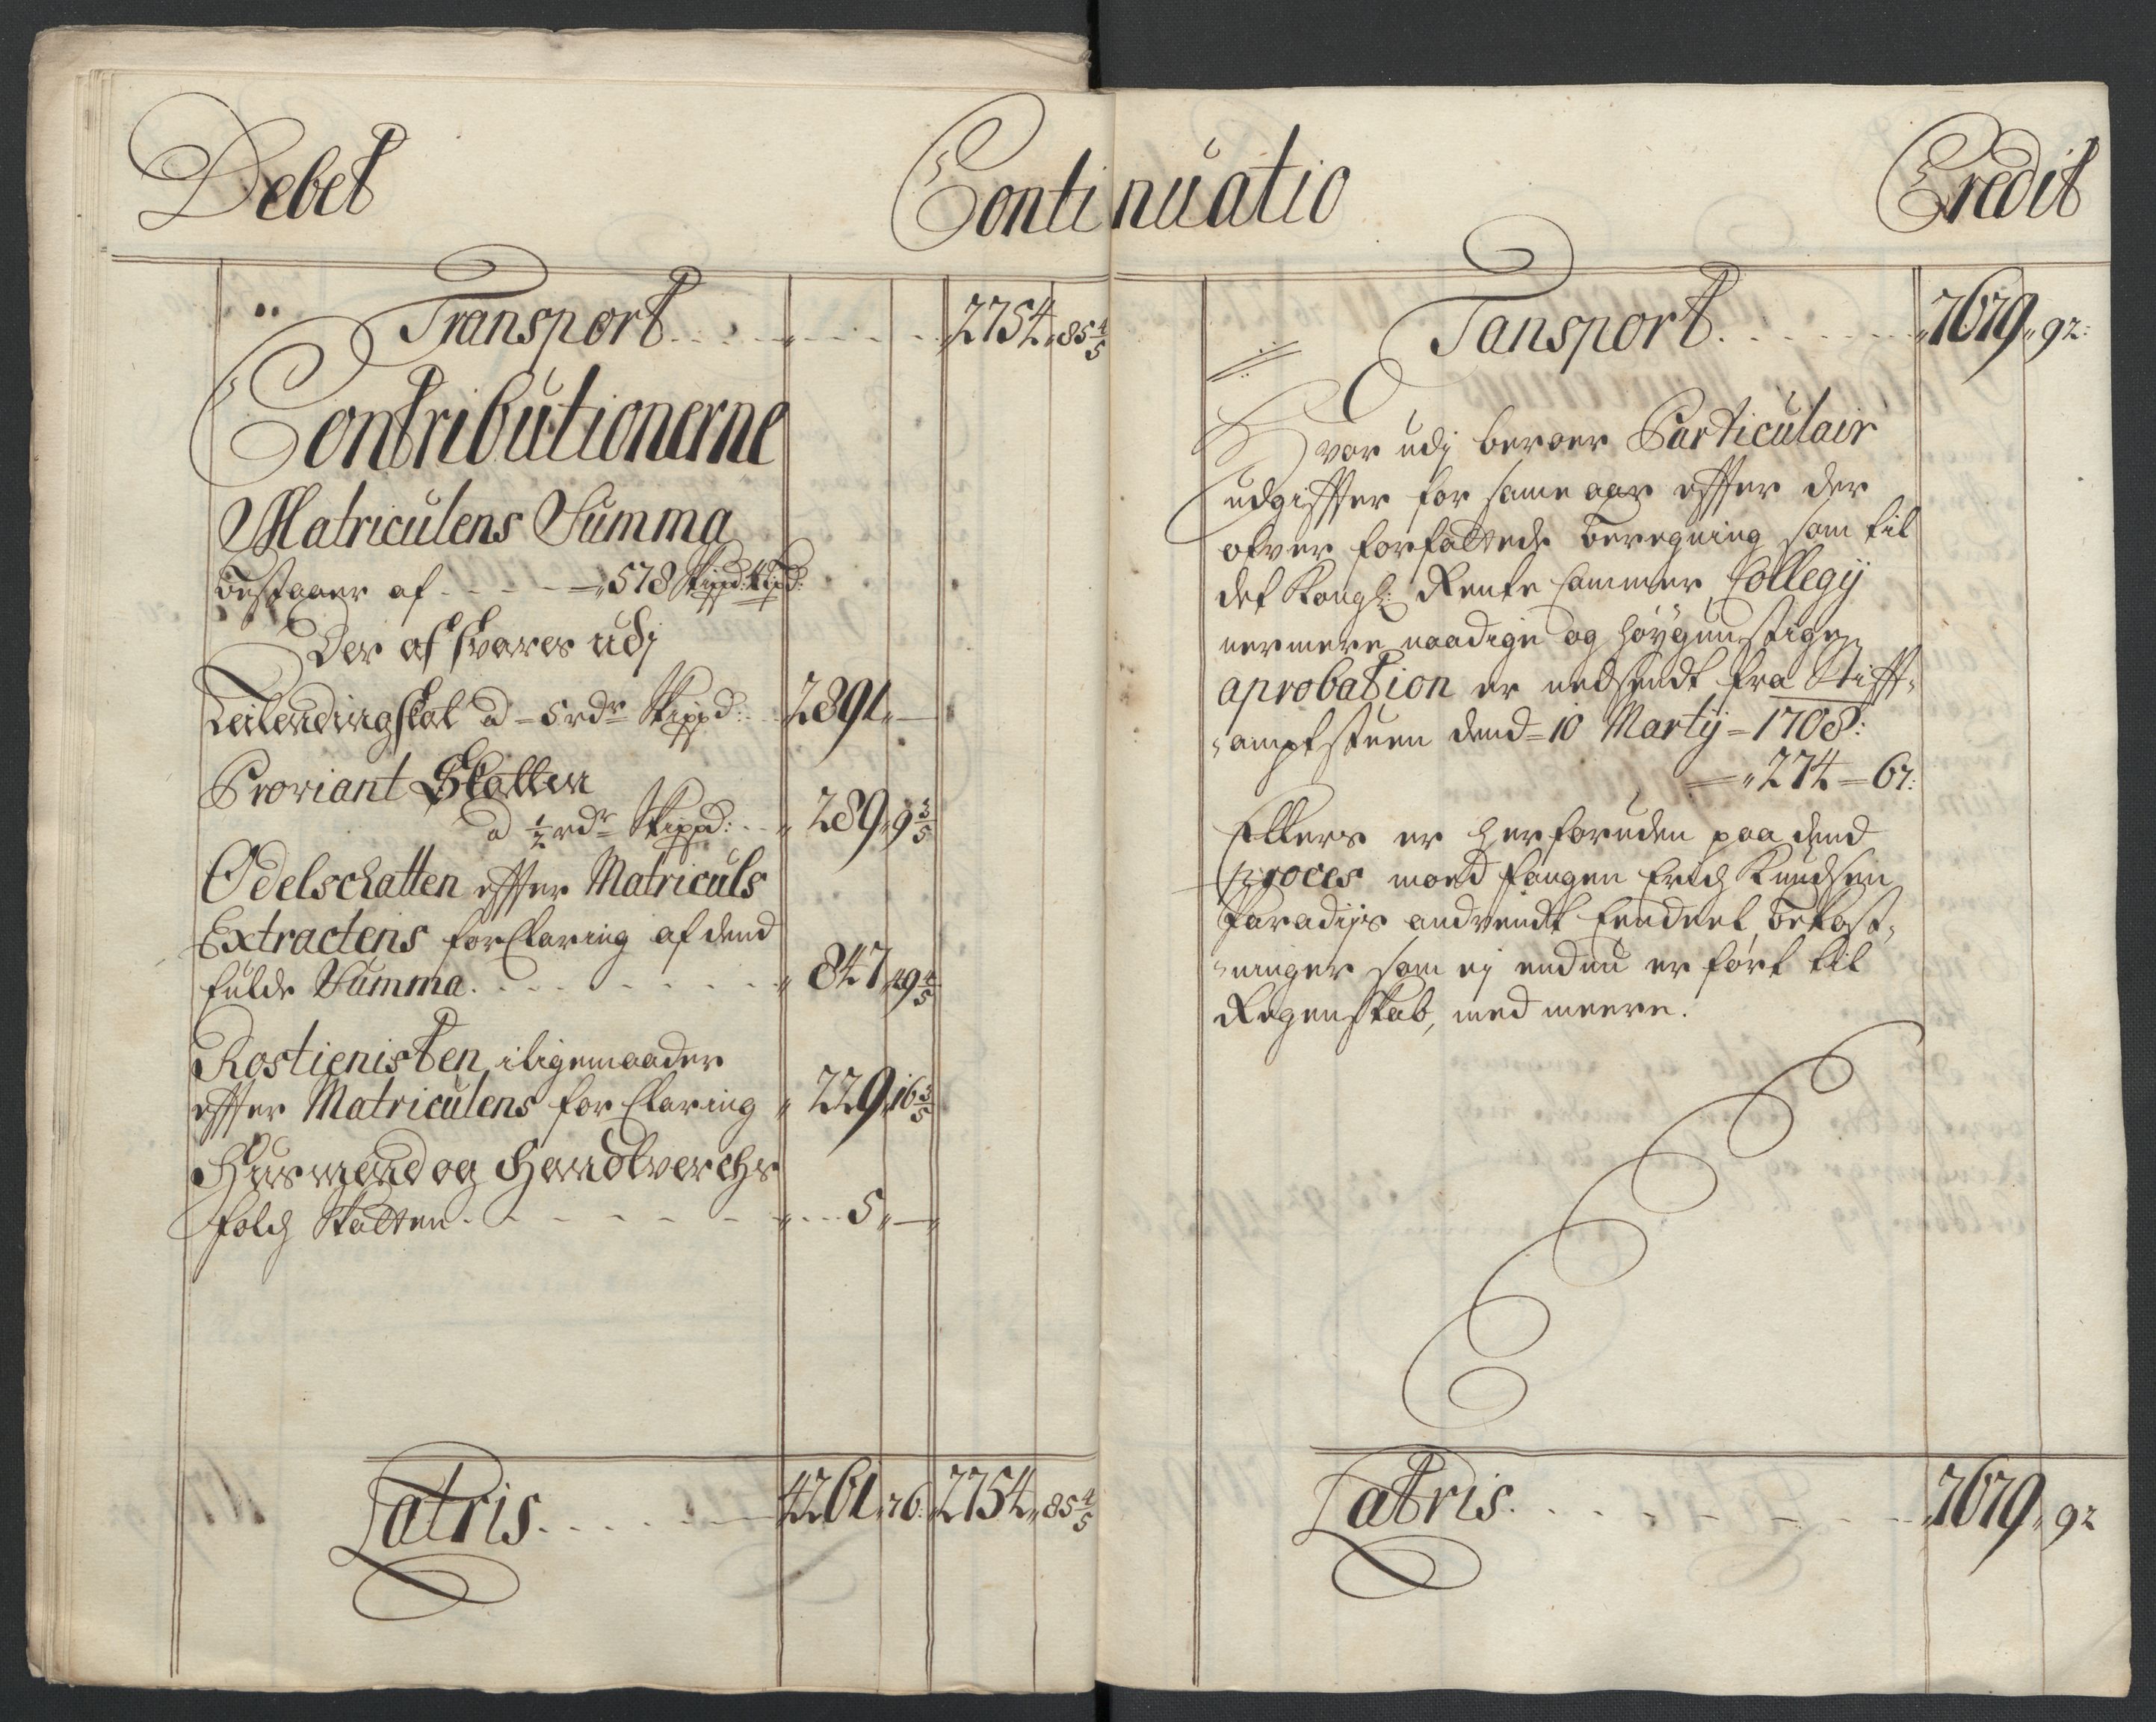 Debet
Continuatio
Credit
Transport 2754 „ 85 4/5
Contributionerne
Matriculens Summa
bestaaer af - - - - „ 578 Skippd: 4 Lpd:
Der af svares udj
Leilendingskat a - 5 rdr Skippd: 2891 „ —
Proviant Skatten
a ½ rdr Skippd: „ 289 „ 9 3/5
Odelschatten effter Matriculs
Extractens forClaring af dend
fulde Summa „ 847 „ 49 4/5
Rostienisten, iligemaader
effter Matriculens forClaring „ 229 „ 16 3/5
Husmend og Handtverchs
folch Skatten „ 5 „ —
Latris 4261 „ 76 „ 2754 „ 85 4/5
Tansport „ 7679 „ 92:
Hvor udj beroer Particulair
udgiffter for same aar effter der
ofver forfattede beregning som til
det Kongl: Rente Cammer Collegij
nermere naadige og höygunstige
aprobation er nedsendt fra Stifft-
ampt stuen dend - 10 Martij - 1708:
„ 274 - 67:
Ellers er her foruden paa dend
proces moed fangen Erich Knudsen
Paradijs andvendt Eendeel bekost-
ninger som ej endnu er fört til
Regenskab, med meere.
Latris „ 7679 „ 92